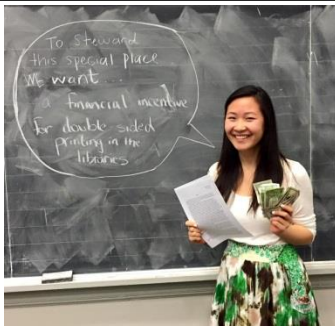 To Steward
this special place
we want...
a financial incentive
for double sided
printing in the
libraries